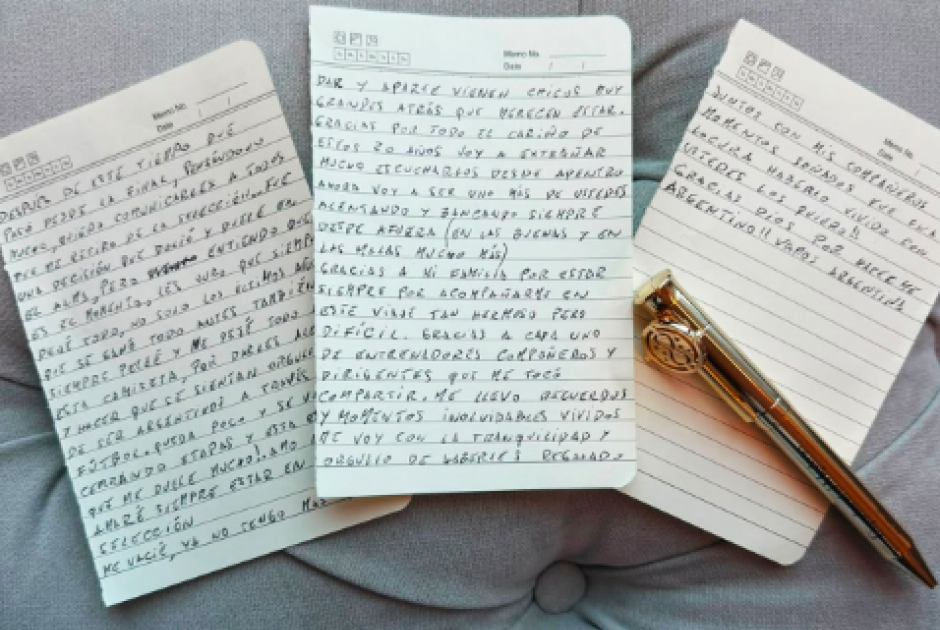 Memo No.
Date / /
DESPUES DE ESTE TIEMPO QUE
PASÓ DESDE LA FINAL, PENSANDOLO
MUCHO, QUIERO COMUNICARLES A TODOS
QUE ME RETIRO DE LA SELECCIÓN. FUE
UNA DECISIÓN QUE DOLIÓ Y DUELE EN
EL ALMA, PERO ENTIENDO QUE
ES EL MOMENTO, LES JURO QUE SIEMPRE
DEJÉ TODO, NO SOLO LOS ÚLTIMOS AÑOS
QUE SE GANÓ TODO ANTES TAMBIÉN
SIEMPRE PELEÉ Y ME DEJÉ TODO
ESTA CAMISETA, POR DARLES
Y HACER QUE SE SIENTAN ORGULLO
DE SER ARGENTINOS A TRAVÉS
FÚTBOL. QUEDA POCO Y SE VA
CERRANDO ETAPAS Y ESTA ES
QUE ME DUELE MUCHO!. AMO
AMARÉ SIEMPRE ESTAR EN
SELECCIÓN
ME VACIÉ, YA NO TENGO MAS
Memo No.
Date / /
DAR Y APARTE VIENEN CHICOS MUY
GRANDES ATRÁS QUE MERECEN ESTAR.
GRACIAS POR TODO EL CARIÑO DE
ESTOS 20 AÑOS VOY A EXTRAÑAR
MUCHO ESCUCHARLOS DESDE ADENTRO
AHORA VOY A SER UNO MÁS DE USTEDES
ALENTANDO Y BANCANDO SIEMPRE
DESDE AFUERA (EN LAS BUENAS Y EN
LAS MALAS MUCHO MÁS)
GRACIAS A MI FAMILIA POR ESTAR
SIEMPRE POR ACOMPAÑARME EN
ESTE VIAJE TAN HERMOSO PERO
DIFÍCIL. GRACIAS A CADA UNO
DE ENTRENADORES COMPAÑEROS Y
DIRIGENTES QUE ME TOCÓ
COMPARTIR. ME LLEVO RECUERDOS
Y MOMENTOS INOLVIDABLES VIVIDOS
ME VOY CON LA TRANQUILIDAD Y
ORGULLO DE HABERLES REGALADO
Memo No.
Date / /
JUNTOS CON MIS COMPAÑEROS
MOMENTOS SOÑADOS FUE UNA
LOCURA HABERLO VIVIDO CON
USTEDES LOS QUIERO!!
GRACIAS DIOS POR HACERME
ARGENTINO!! VAMOS ARGENTINA